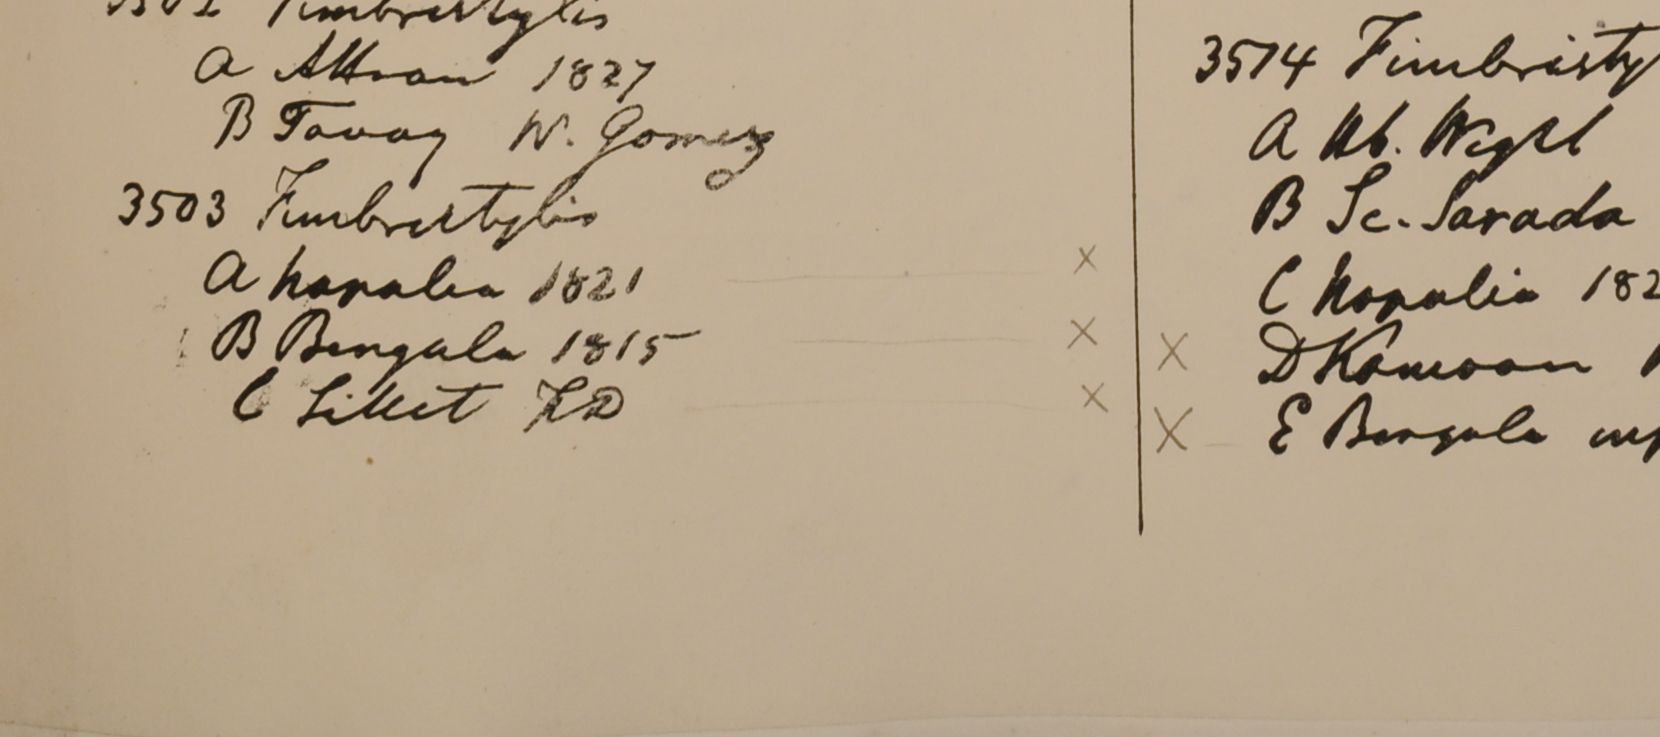 3502 Fimbristylis
A Attran 1827
B Tavoy W. Gomez
3503 Fimbristylis
A Napalia 1821
B Bengala 1815
C Sillet FD
3514 Fimbristy
A Hb. Wight
B Sc. Sarada
C Napalia 182
D Kamoon
E Bengala